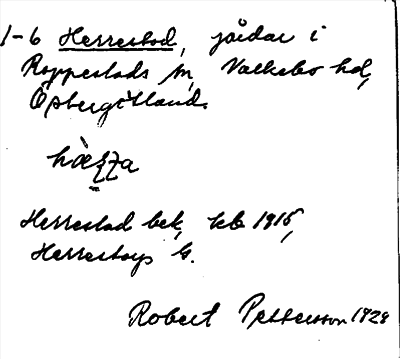 1-6 Herrestad, gårdar i
Rappestads sn, Valkebo hd,
Östergötland.
hæ̀ʐʐa
Herrestad bek, kb 1915,
Herrestorps G.
Robert Pettersson 1929